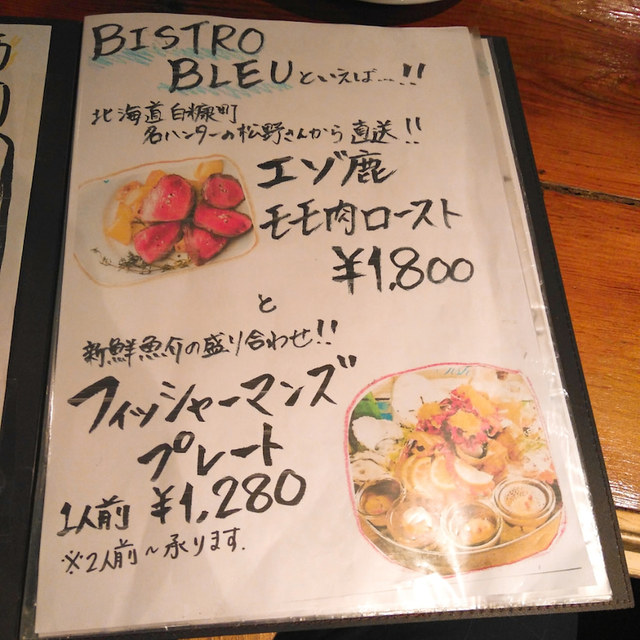 BISTRO
BLEUといえば…!!
北海道白糠町
名ハンターの松野さんから直送!!
エゾ鹿
モモ肉ロースト
¥1,800
と
新鮮魚介の盛り合わせ!!
フィッシャーマンズ
プレート
1人前 ¥1,280
※2人前~承ります.